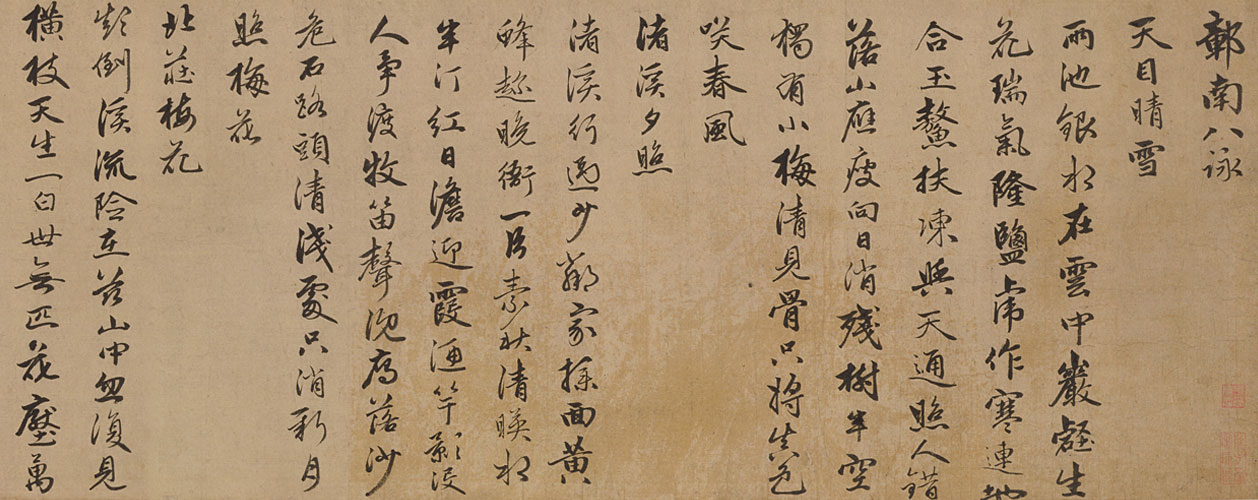 鄣南八詠
天目晴雪
兩池銀水在雲中巖壑生
花瑞氣隆鹽虎作寒連地
合玉鰲扶凍與天通照人錯
落山應瘦向日消殘樹半空
獨有小梅清見骨只將真色
咲春風
渚溪夕照
渚溪行過少鄰家撲面黃
蜂趁晚衙一段素秋清暎水
半汀紅日澹迎霞酒竿影沒
人爭渡牧笛聲沉雁落沙
危石路頭清淺處只消新月
照梅花
北莊梅花
倒溪流在茲山中忽復見
橫枝天生一白世無匹花壓萬